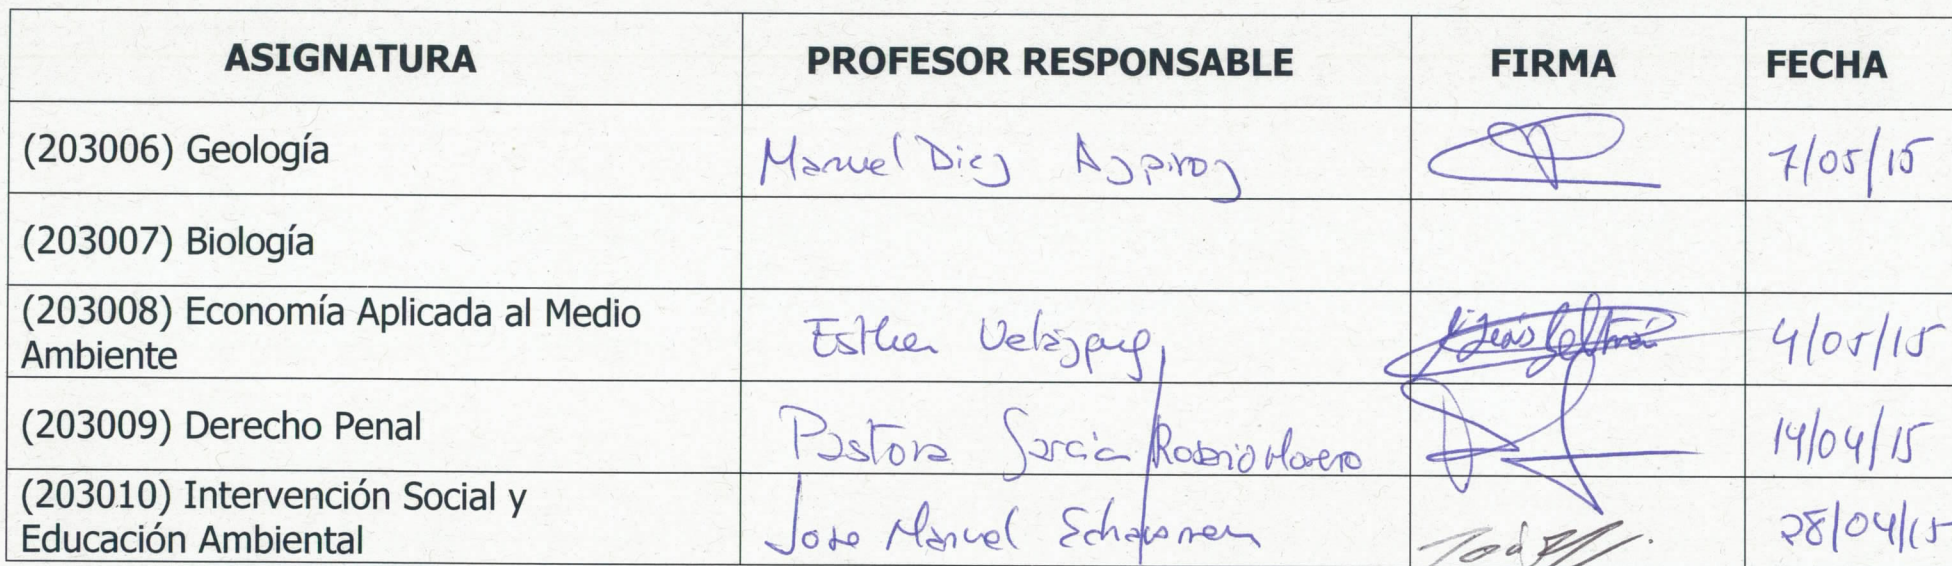 ASIGNATURA PROFESOR RESPONSABLE FIRMA FECHA
(203006) Geología Manuel Diez Azpiroz 7/05/15
(203007) Biología
(203008) Economía Aplicada al Medio
Ambiente Esther Velázquez 4/05/15
(203009) Derecho Penal Pastora García 14/04/15
(203010) Intervención Social y
Educación Ambiental Jose Manuel 28/04/15